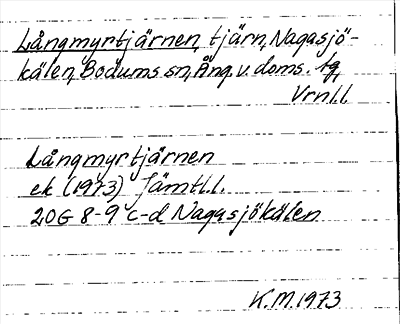 Långmyrtjärnen, tjärn, Nagasjö-
kälen, Bodums sn, Ång. v. doms. tg,
Vrnl.l.
Långmyrtjärnen
ek (1973) Jämtl.l.
20G 8-9 c-d Nagasjökälen
K.M. 1973